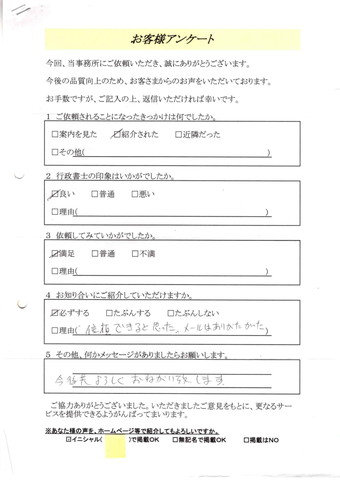 お客様アンケート
今回、当事務所にご依頼いただき、誠にありがとうございます。
今後の品質向上のため、お客さまからのお声をいただいております。
お手数ですが、ご記入の上、返信いただければ幸いです。
1 ご依頼されることになったきっかけは何でしたか。
□案内を見た ☑紹介された □近隣だった
□その他( )
2 行政書士の印象はいかがでしたか。
☑良い □普通 □悪い
□理由( )
3 依頼してみていかがでしたか。
☑満足 □普通 □不満
□理由( )
4 お知り合いにご紹介していただけますか。
☑必ずする □たぶんする □たぶんしない
□理由( 信頼できると思った。メールはありがたかった )
5 その他、何かメッセージがありましたらお願いします。
今後共よろしくおねがい致します
ご協力ありがとうございました。いただきましたご意見をもとに、更なるサー
ビスを提供できるようがんばってまいります。
※あなた様の声を、ホームページ等で紹介してもよろしいですか。
☑イニシャル( )で掲載OK □無記名で掲載OK □掲載はNO